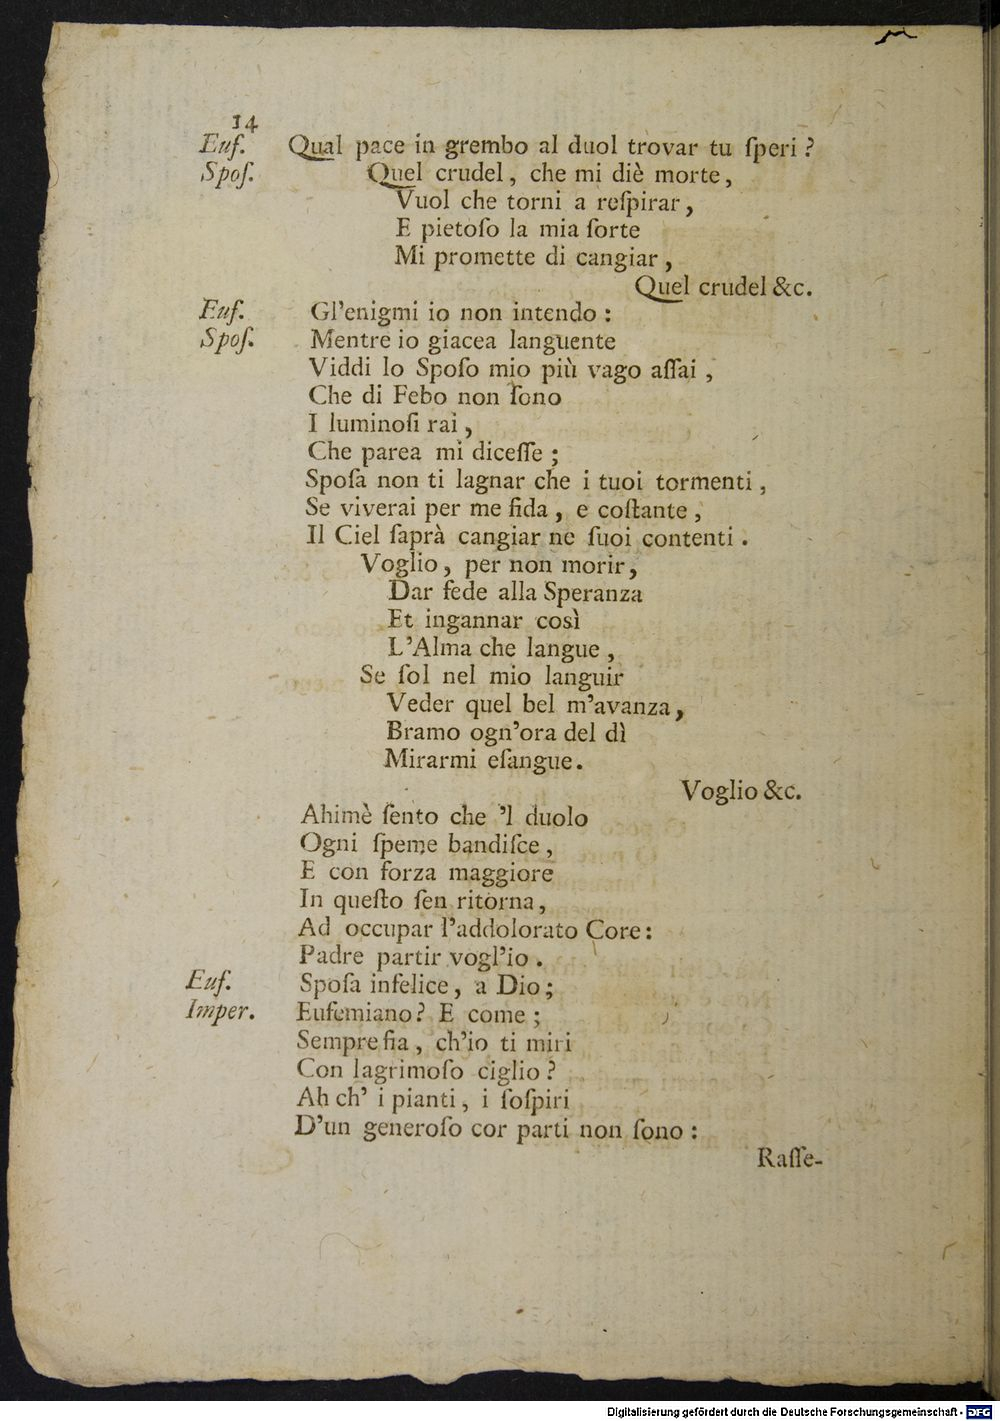 14
Euſ. Qual pace in grembo al duol trovar tu ſperi ?
Spoſ. Quel crudel, che mi diè morte,
Vuol che torni a reſpirar,
E pietoſo la mia ſorte
Mi promette di cangiar,
Quel crudel &c.
Euſ. Gl'enigmi io non intendo :
Spoſ. Mentre io giacea languente
Viddi lo Spoſo mio più vago aſſai,
Che di Febo non ſono
I luminoſi rai,
Che parea mi diceſſe ;
Spoſa non ti lagnar che i tuoi tormenti,
Se viverai per me fida, e coſtante,
Il Ciel ſaprà cangiar ne ſuoi contenti.
Voglio, per non morir,
Dar fede alla Speranza
Et ingannar così
L'Alma che langue,
Se ſol nel mio languir
Veder quel bel m'avanza,
Bramo ogn'ora del dì
Mirarmi eſangue.
Voglio &c.
Ahimè ſento che 'l duolo
Ogni ſpeme bandiſce,
E con forza maggiore
In queſto ſen ritorna,
Ad occupar l'addolorato Core:
Padre partir vogl'io.
Euf. Spoſa infelice, a Dio;
Imper. Eufemiano? E come ;
Sempre fia, ch'io ti miri
Con lagrimoſo ciglio ?
Ah ch' i pianti, i ſoſpiri
D'un generoſo cor parti non ſono :
Raſſe-
Digitalisierung gefördert durch die Deutsche Forschungsgemeinschaft - DFG